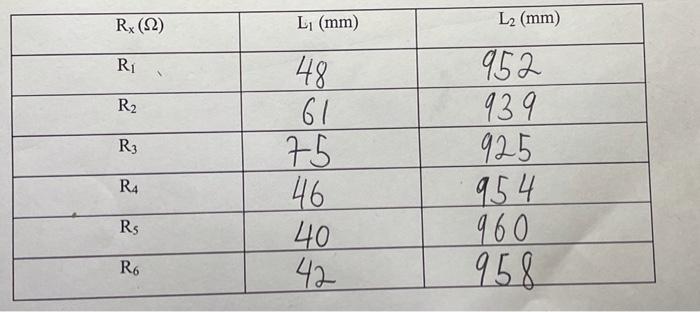 Rx (Ω) L1 (mm) L2 (mm)
R1 48 952
R2 61 939
R3 75 925
R4 46 954
R5 40 960
R6 42 958